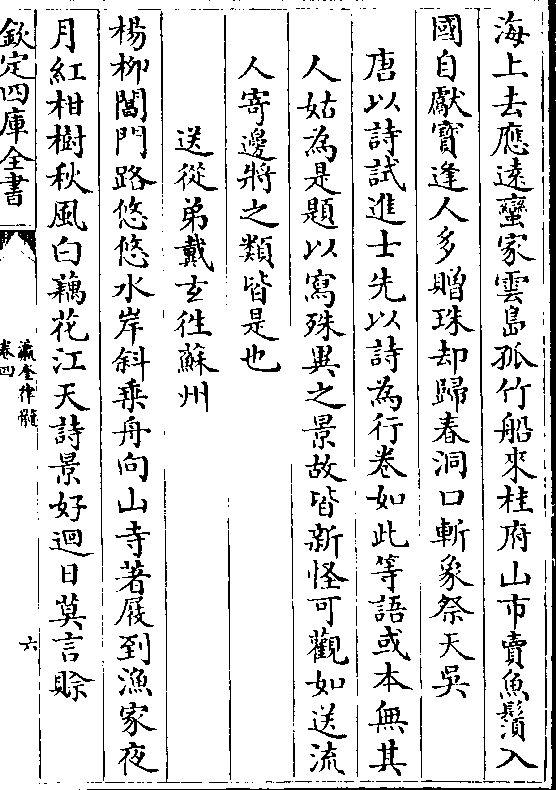 海上去應遠蠻家雲島孤竹船來桂府山市賣魚鬚入
國自獻寶逢人多贈珠却歸春洞口斬象祭天吳
唐以詩試進士先以詩為行卷如此等語或本無其
人姑為是題以寫殊異之景故皆新怪可觀如送流
人寄邊將之類皆是也
送從弟戴玄往蘇州
楊柳閶門路悠悠水岸斜乘舟向山寺著屐到漁家夜
月紅柑樹秋風白藕花江天詩景好迴日莫言賖
欽定四庫全書
瀛奎律髓
卷四
六